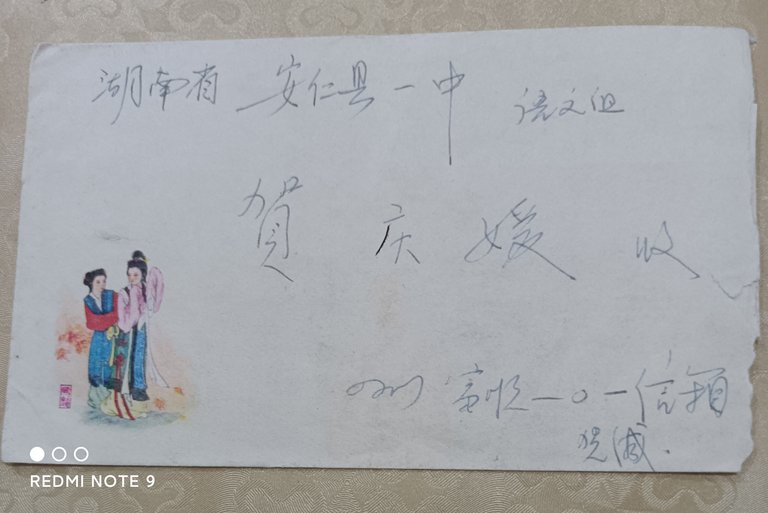 湖南省 安仁县一中 语文组
贺 庆 媛 收
四川 富顺一〇一信箱
贺
REDMI NOTE 9